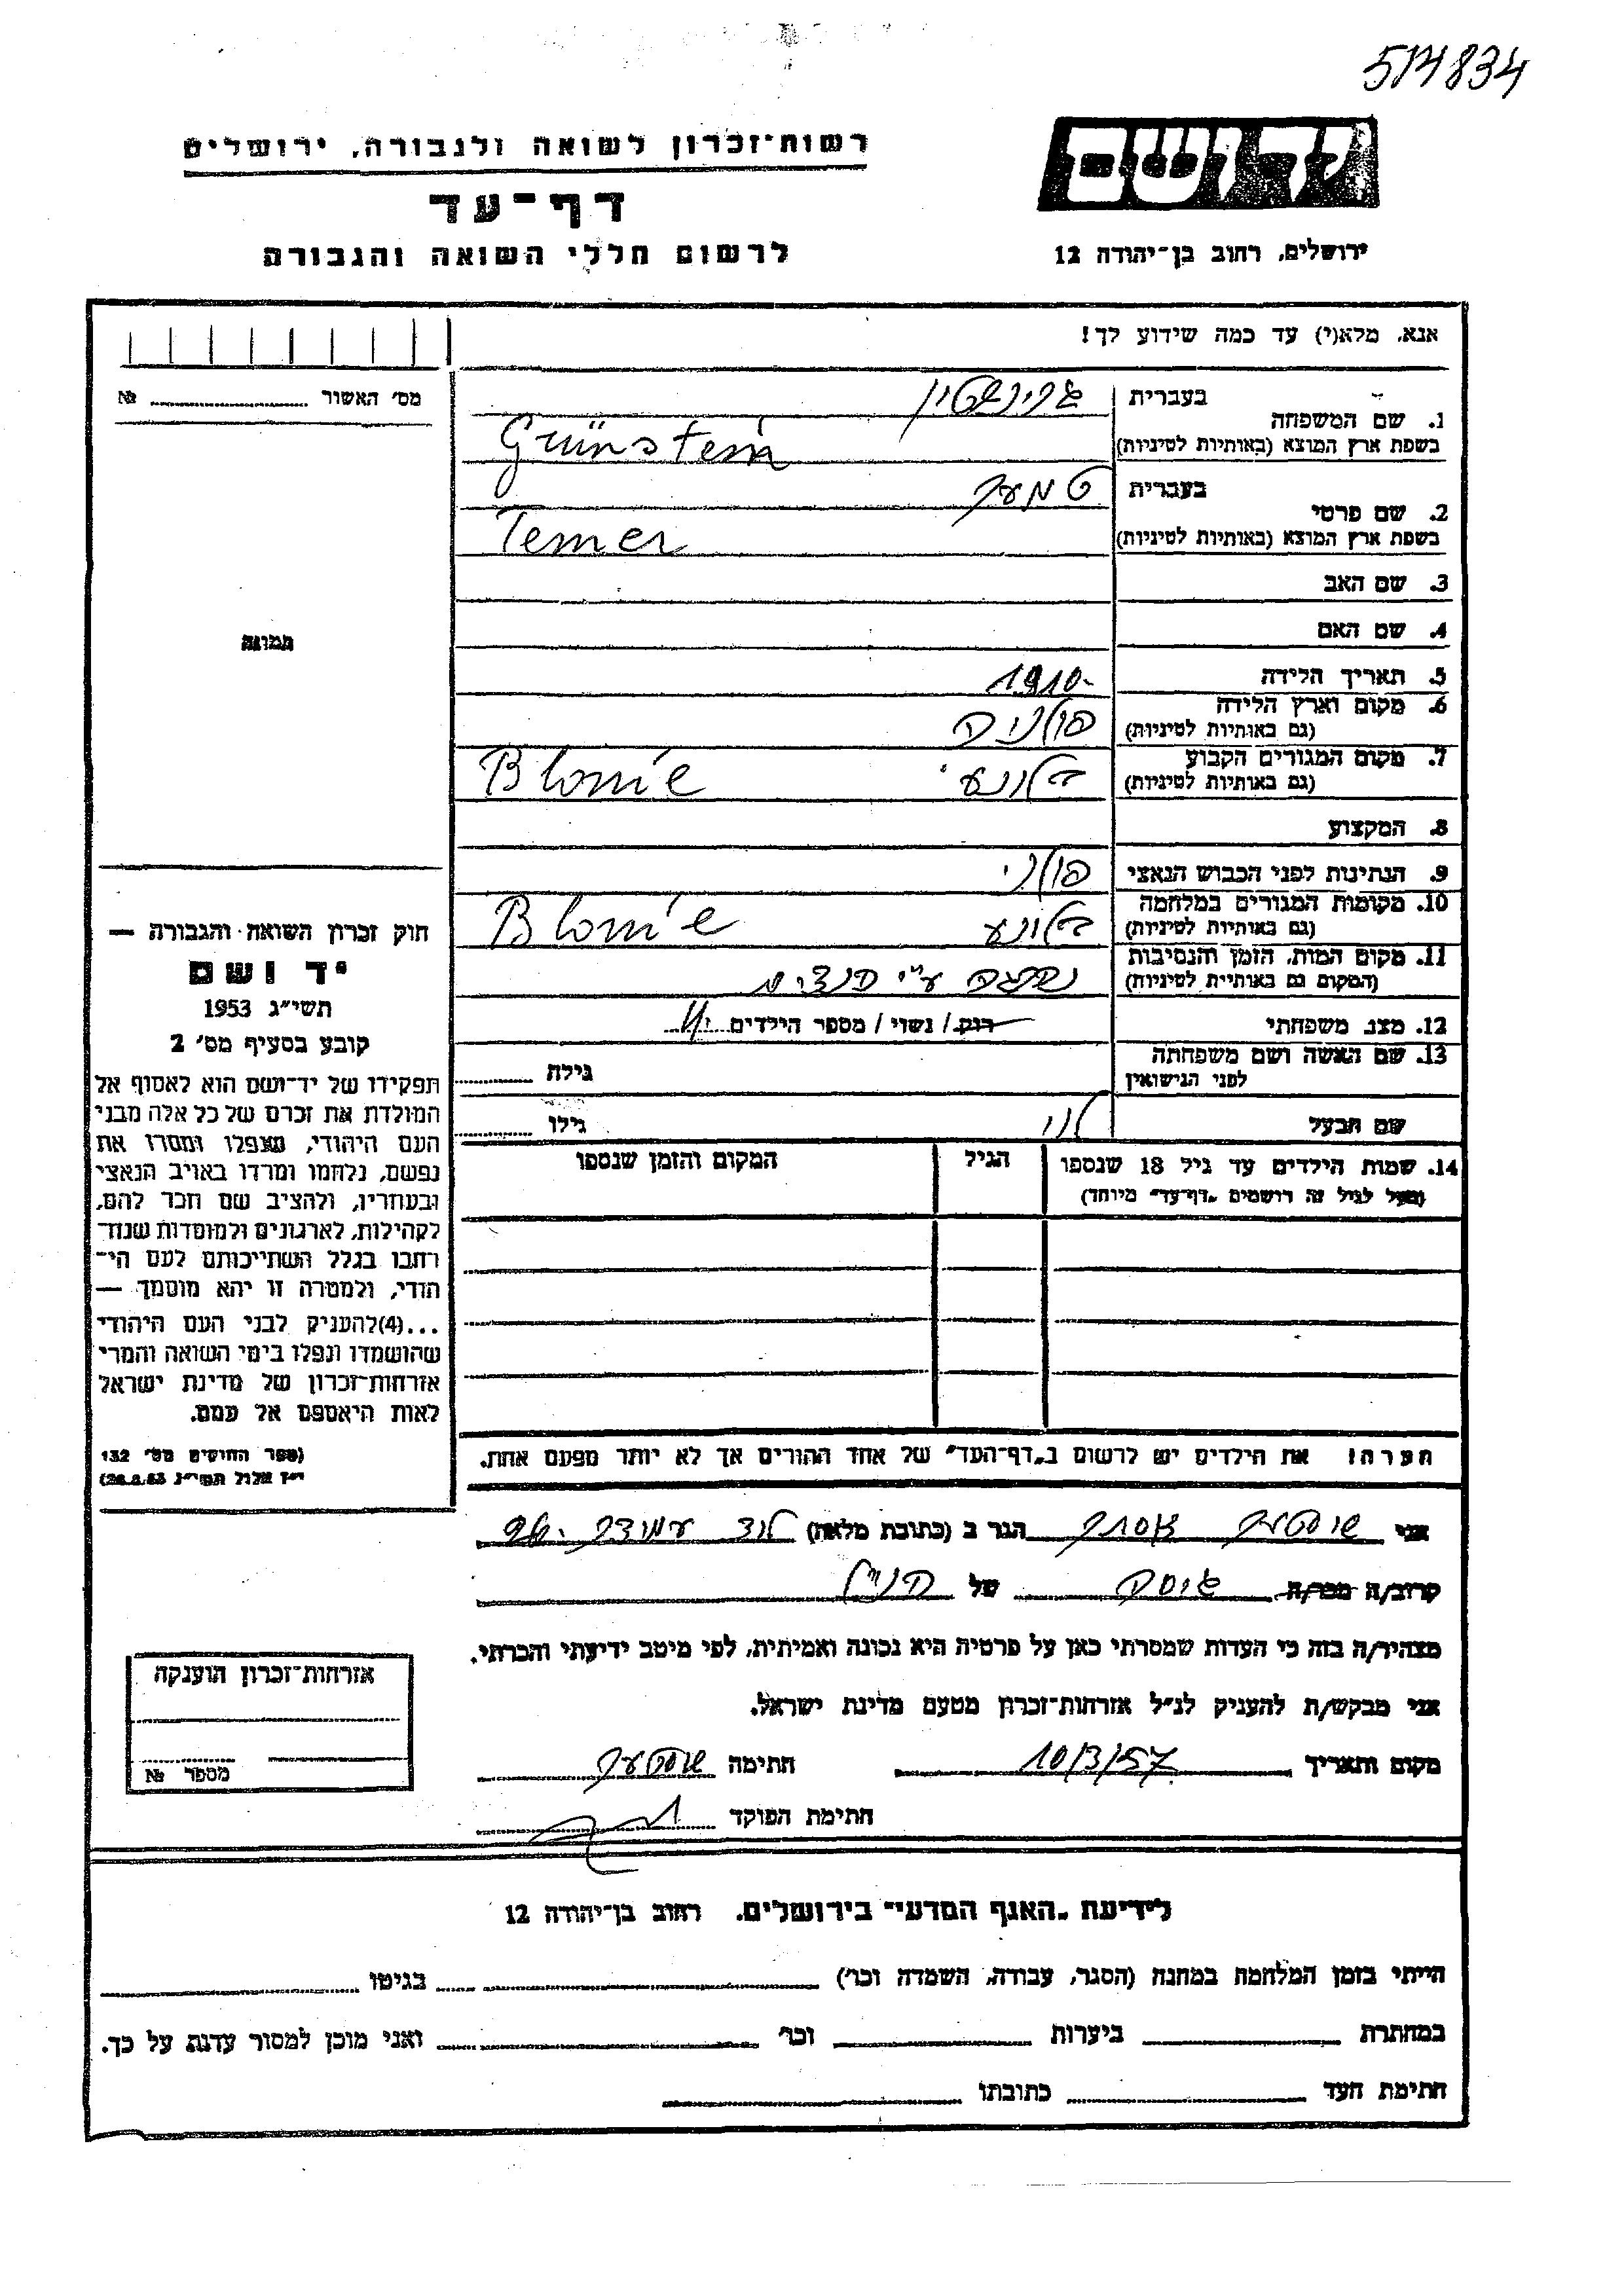 514834
יד ושם
רשות־זכרון לשואה ולגבורה, ירושלים
דף־עד
לרשום חללי השואה והגבורה
ירושלים, רחוב בן־יהודה 12
אנא, מלא(י) עד כמה שידוע לך!
מס' האשור № 
תמונה
חוק זכרון השואה והגבורה —
יד ושם
תשי"ג 1953
קובע בסעיף מס' 2
תפקידו של יד־ושם הוא לאסוף אל
המולדת את זכרם של כל אלה מבני
העם היהודי, שנפלו ומסרו את
נפשם, נלחמו ומרדו באויב הנאצי
ובעוזריו, ולהציב שם וזכר להם,
לקהילות, לארגונים ולמוסדות שנח־
רבו בגלל השתייכותם לעם הי־
הודי, ולמטרה זו יהא מוסמך —
...(4)להעניק לבני העם היהודי
שהושמדו ונפלו בימי השואה והמרי
אזרחות־זכרון של מדינת ישראל
לאות היאספם אל עמם.
(ספר החוקים מס' 132
י"ז אלול תשי"ג 28.8.53)
1. שם המשפחה בעברית גרינשטיין
בשפת ארץ המוצא (באותיות לטיניות) Grünstein
2. שם פרטי בעברית טמער
בשפת ארץ המוצא (באותיות לטיניות) Temer
3. שם האב
4. שם האם
5. תאריך הלידה 1910-
6. מקום וארץ הלידה (גם באותיות לטיניות) פולניה
7. מקום המגורים הקבוע (גם באותיות לטיניות) בלונע' Blonie
8. המקצוע
9. הנתינות לפני הכבוש הנאצי פולני
10. מקומות המגורים במלחמה (גם באותיות לטיניות) בלונע Blonie
11. מקום המות, הזמן והנסיבות (המקום גם באותיות לטיניות) נספגה ע"י הנצים
12. מצב משפחתי רוק/ נשוי/ מספר הילדים
13. שם האשה ושם משפחתה לפני הנישואין גילה
שם הבעל לוי גילו
14. שמות הילדים עד גיל 18 שנספו הגיל המקום והזמן שנספו
(מעל לגיל זה רושמים „דף־עד" מיוחד)
הערה! את הילדים יש לרשום ב„דף־העד" של אחד ההורים אך לא יותר מפעם אחת.
אני אסתר הגר ב (כתובת מלאה) לוד
קרוב/ה מכר/ה גיסה של הנ"ל
מצהיר/ה בזה כי העדות שמסרתי כאן על פרטיה היא נכונה ואמיתית, לפי מיטב ידיעתי והכרתי.
אני מבקש/ת להעניק לנ"ל אזרחות־זכרון מטעם מדינת ישראל.
מקום ותאריך 10/3/57 חתימה
חתימת הפוקד
אזרחות־זכרון הוענקה
מספר №
לידיעת „האגף המדעי" בירושלים, רחוב בן־יהודה 12
הייתי בזמן המלחמה במחנה (הסגר, עבודה, השמדה וכו') בגיטו
במחתרת ביערות וכו' ואני מוכן למסור עדות על כך.
חתימת העד כתובתו